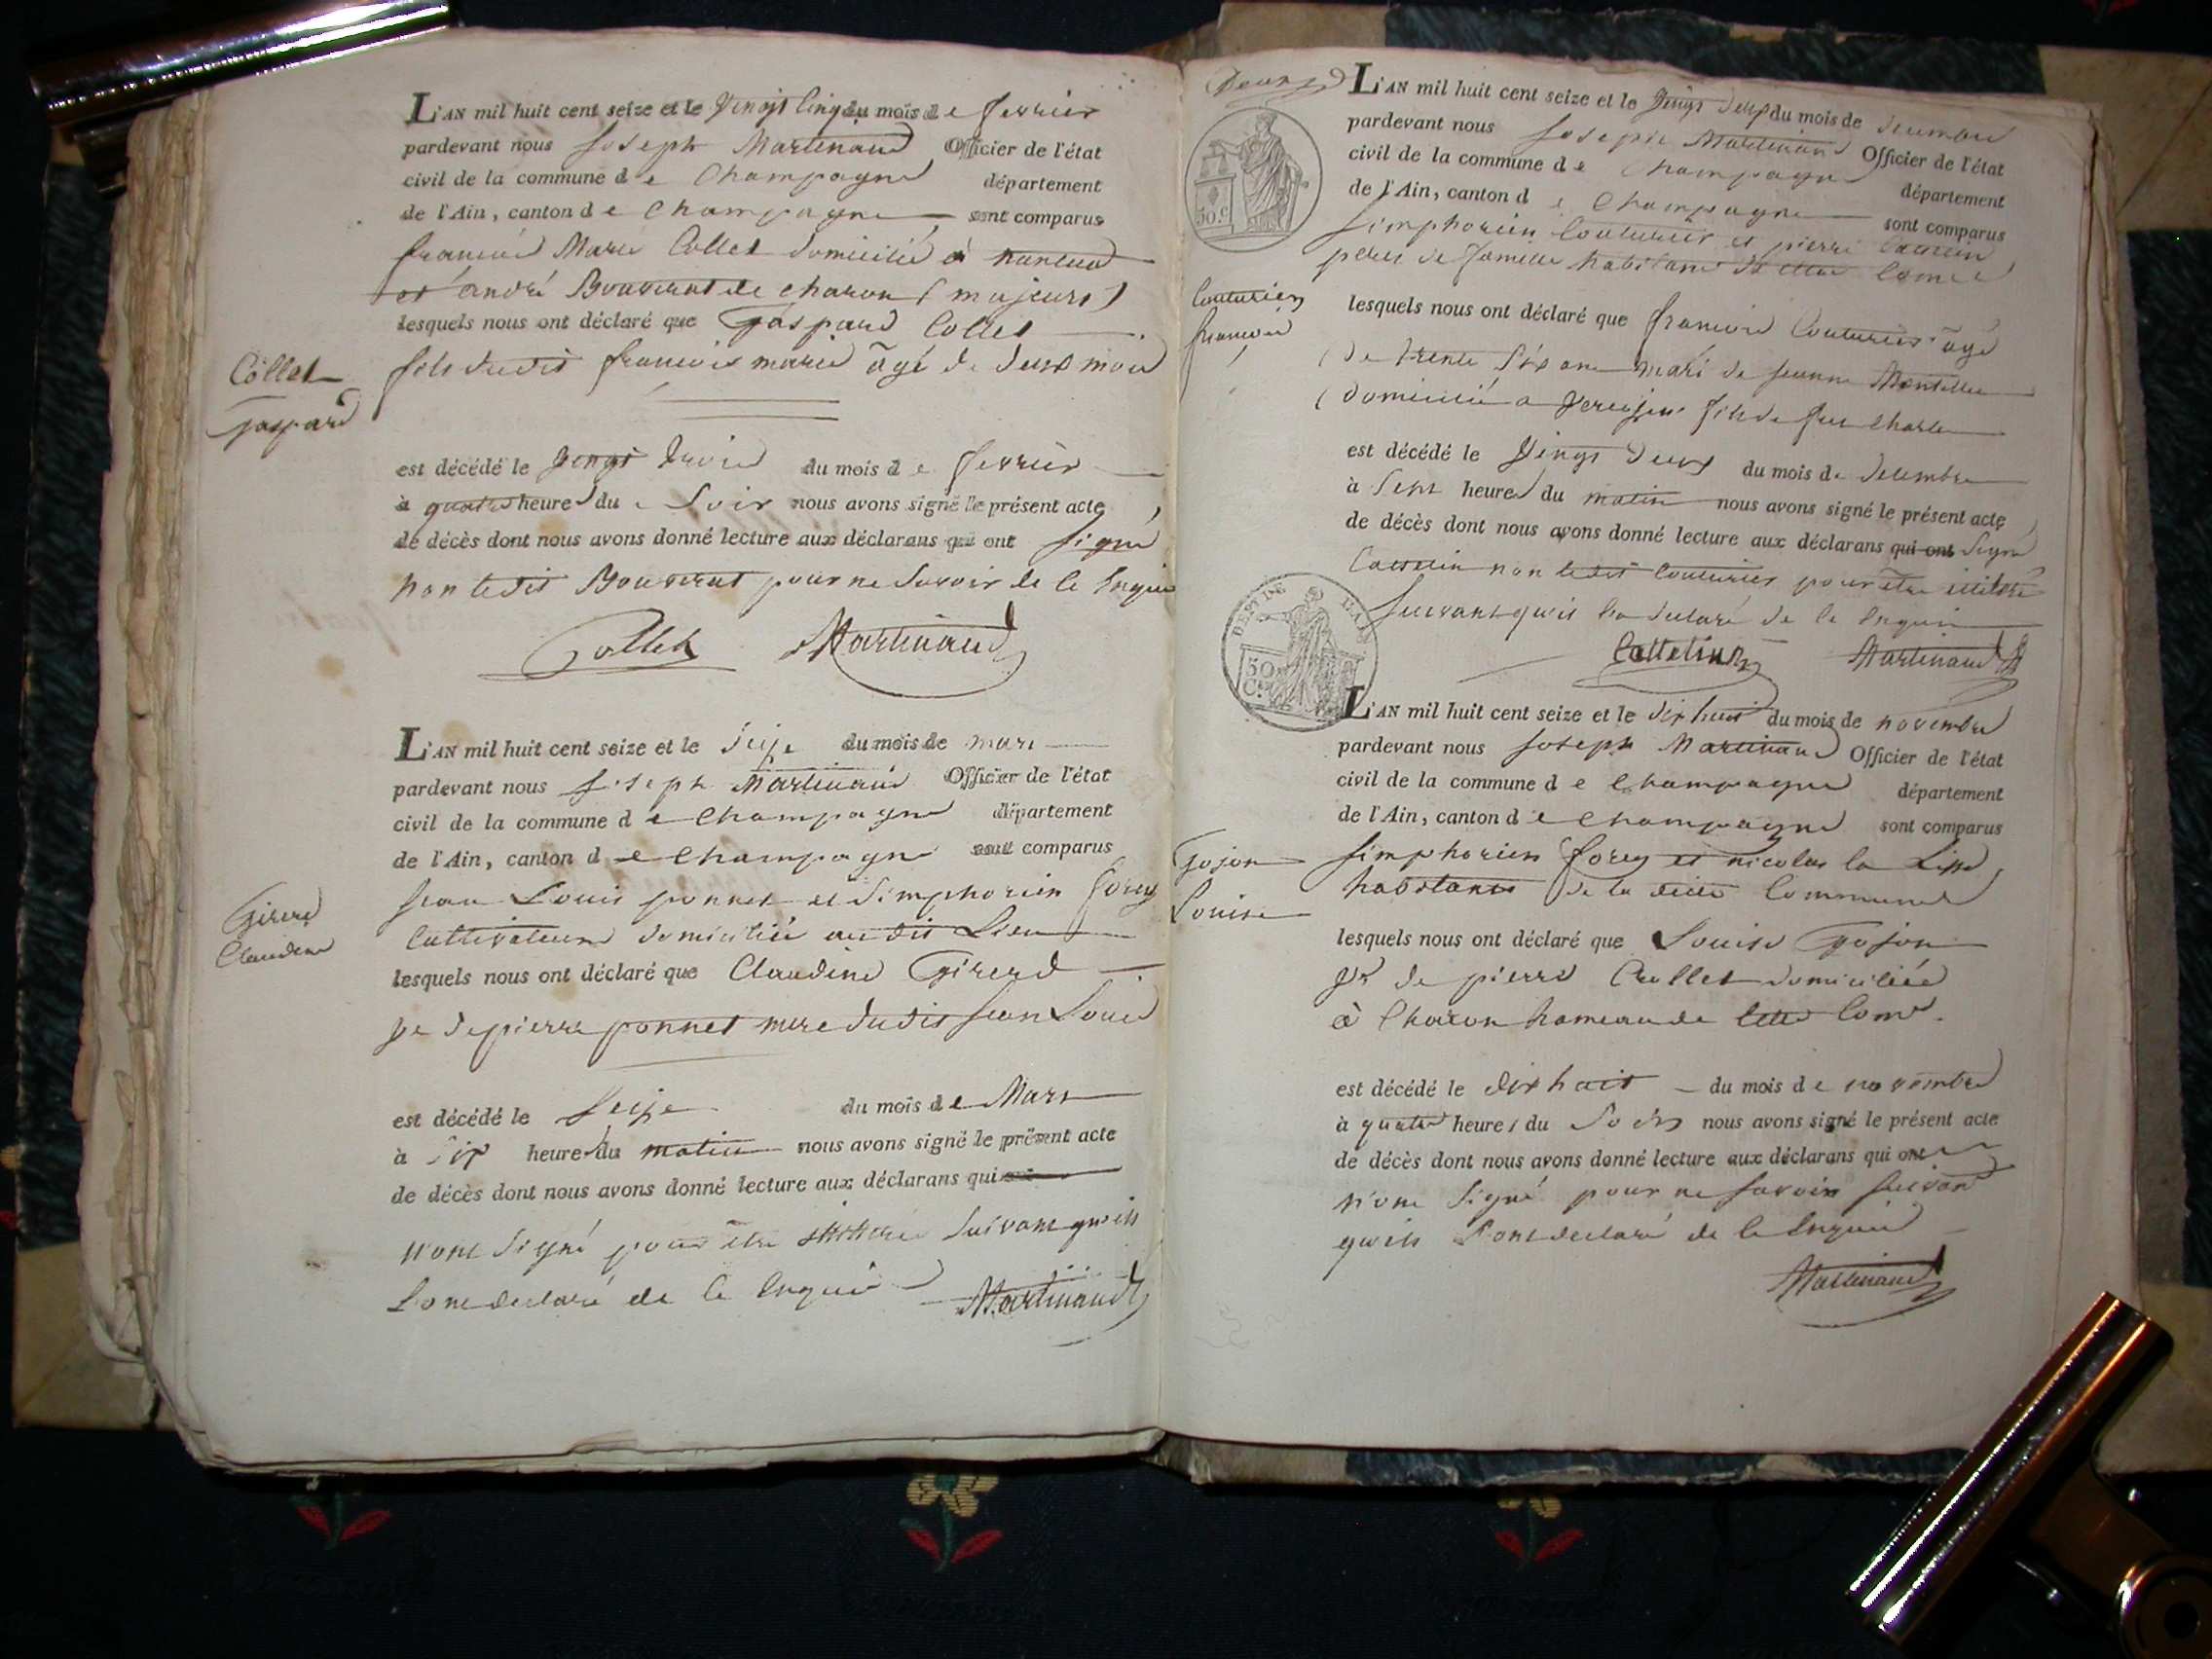 L'AN mil huit cent seize et le vingt cinq du mois de fevrier
pardevant nous Joseph Martinand Officier de l'état
civil de la commune de Champagne département
de l'Ain, canton de Champagne sont comparus
francois Marie Collet domicilié à
et andré Bouverat de charon (majeurs)
lesquels nous ont déclaré que Gaspard Collet
Collet
gaspard
fils dudit francois marie âgé de deux mois
est décédé le vingt trois du mois de fevrier
à quatre heures du Soir nous avons signé le présent acte
de décès dont nous avons donné lecture aux déclarans qui ont signé
non ledit Bouverat pour ne savoir de ce Enquis
Collet Martinand
L'AN mil huit cent seize et le seize du mois de mars
pardevant nous Joseph Martinand Officier de l'état
civil de la commune de Champagne département
de l'Ain, canton de Champagne sont comparus
Jean Louis ponnet et Simphorien forey
Girerd
Claudine
Cultivateurs domiciliés audit Lieu
lesquels nous ont déclaré que Claudine Girerd
ve de pierre ponnet mere dudit Jean Louis
est décédé le seize du mois de Mars
à six heures du matin nous avons signé le présent acte
de décès dont nous avons donné lecture aux déclarans qui ont
n'ont signé pour être illitérés suivant qu'ils
L'ont declaré de ce Enquis Martinand
L'AN mil huit cent seize et le vingt deux du mois de decembre
pardevant nous Joseph Martinand Officier de l'état
civil de la commune de Champagne département
de l'Ain, canton de Champagne sont comparus
50.c
Simphorien Couturier et pierre
peres de famille habitans de cette Comne
Couturier
francois
lesquels nous ont déclaré que francois Couturier âgé
de trente six ans mari de jeanne
domicilié a fils de feu Charles
est décédé le vingt deux du mois de decembre
à sept heures du matin nous avons signé le présent acte
de décès dont nous avons donné lecture aux déclarans qui ont signé
non ledit Couturier pour être illitéré
suivant qu'il l'a declaré de ce Enquis
50 Cs
Martinand
L'AN mil huit cent seize et le dix huit du mois de novembre
pardevant nous Joseph Martinand Officier de l'état
civil de la commune de Champagne département
de l'Ain, canton de Champagne sont comparus
Gojon
Louise
Simphorien forey et nicolas
habitants de la dite Commune
lesquels nous ont déclaré que Louise Gojon
ve de pierre Crollet domiciliée
à Charon hameau de cette Comne.
est décédé le dix huit du mois de novembre
à quatre heures du Soir nous avons signé le présent acte
de décès dont nous avons donné lecture aux déclarans qui ont
n'ont signé pour ne savoir suivant
qu'ils l'ont declaré de ce Enquis
Martinand